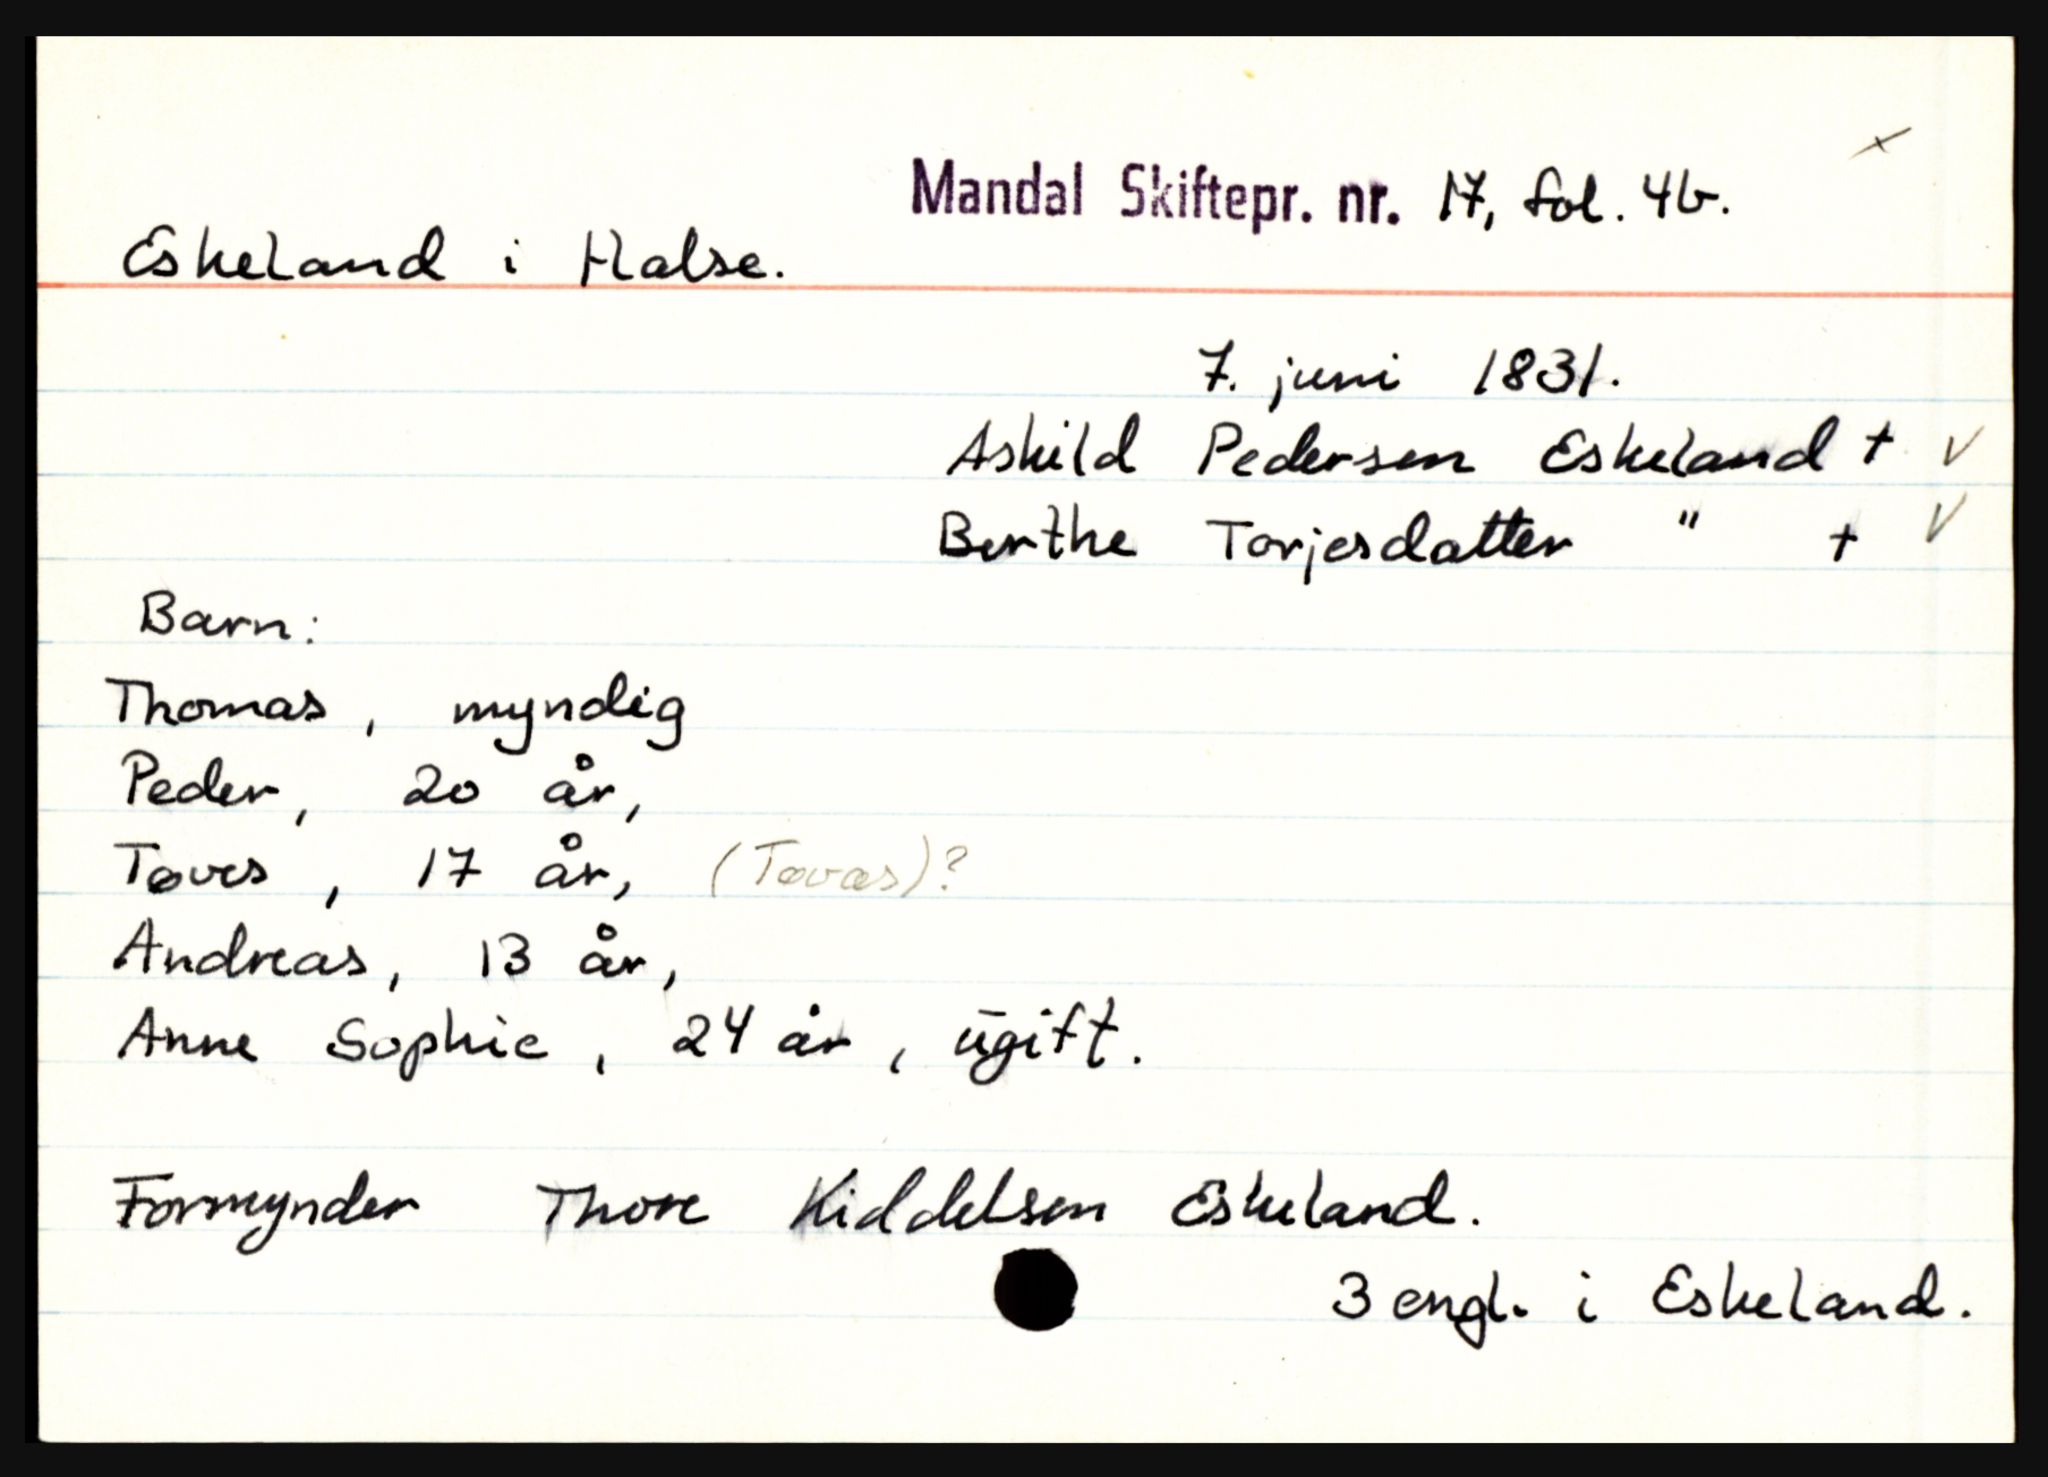 Mandal Skiftepr. nr. 17, fol. 4b.
Eskeland i Halse.
7. juni 1831.
Askild Pedersen Eskeland + V
Berthe Torjesdatter " + V
Barn:
Thomas, myndig
Peder, 20 år,
Tøves, 17 år, (Tøvas)?
Andreas, 13 år,
Anne Sophie, 24 år, ugift.
Formynder Thore Kiddelsen Eskeland.
3 engl. i Eskeland.